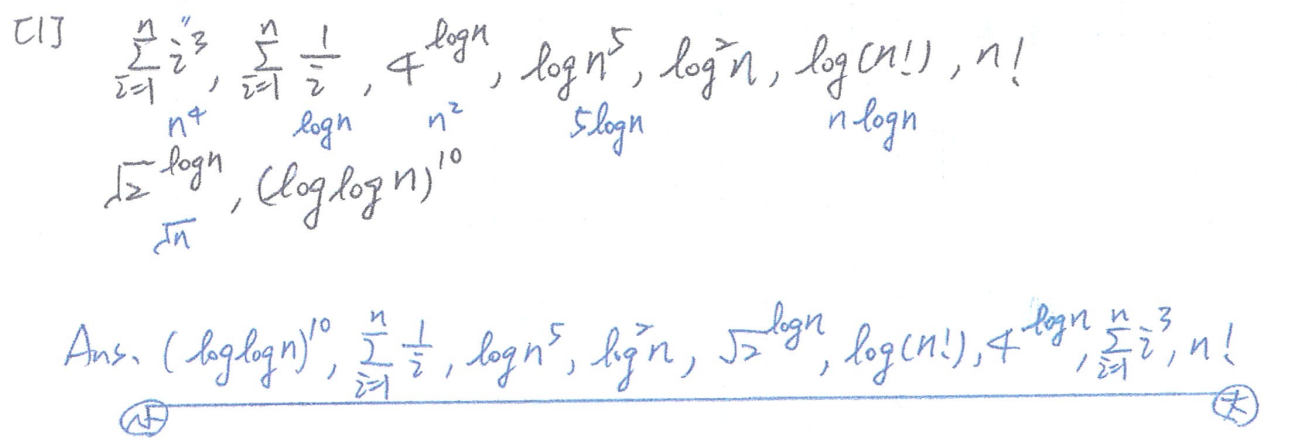 [1] $\sum_{i=1}^{n} i^3$, $\sum_{i=1}^{n} \frac{1}{i}$, $4^{\log n}$, $\log n^5$, $\log^2 n$, $\log(n!)$, $n!$
$n^4$ $\log n$ $n^2$ $5\log n$ $n\log n$
$\sqrt{2}^{\log n}$, $(\log\log n)^{10}$
$\sqrt{n}$
Ans. $(\log\log n)^{10}$, $\sum_{i=1}^{n} \frac{1}{i}$, $\log n^5$, $\log^2 n$, $\sqrt{2}^{\log n}$, $\log(n!)$, $4^{\log n}$, $\sum_{i=1}^{n} i^3$, $n!$
小 大